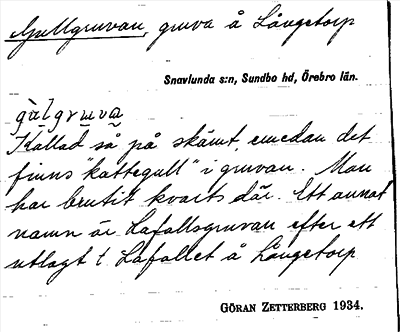 Gullgruvan, gruva å Långetorp
Snavlunda s:n, Sundbo hd, Örebro län.
gùlgruva
Kallad så på skämt, emedan det
finns "kattegull" i gruvan. Man
har brutit kvarts där. Ett annat
namn är Lafallsgruvan efter ett
utlagt t. Lafallet å Långetorp
GÖRAN ZETTERBERG 1934.